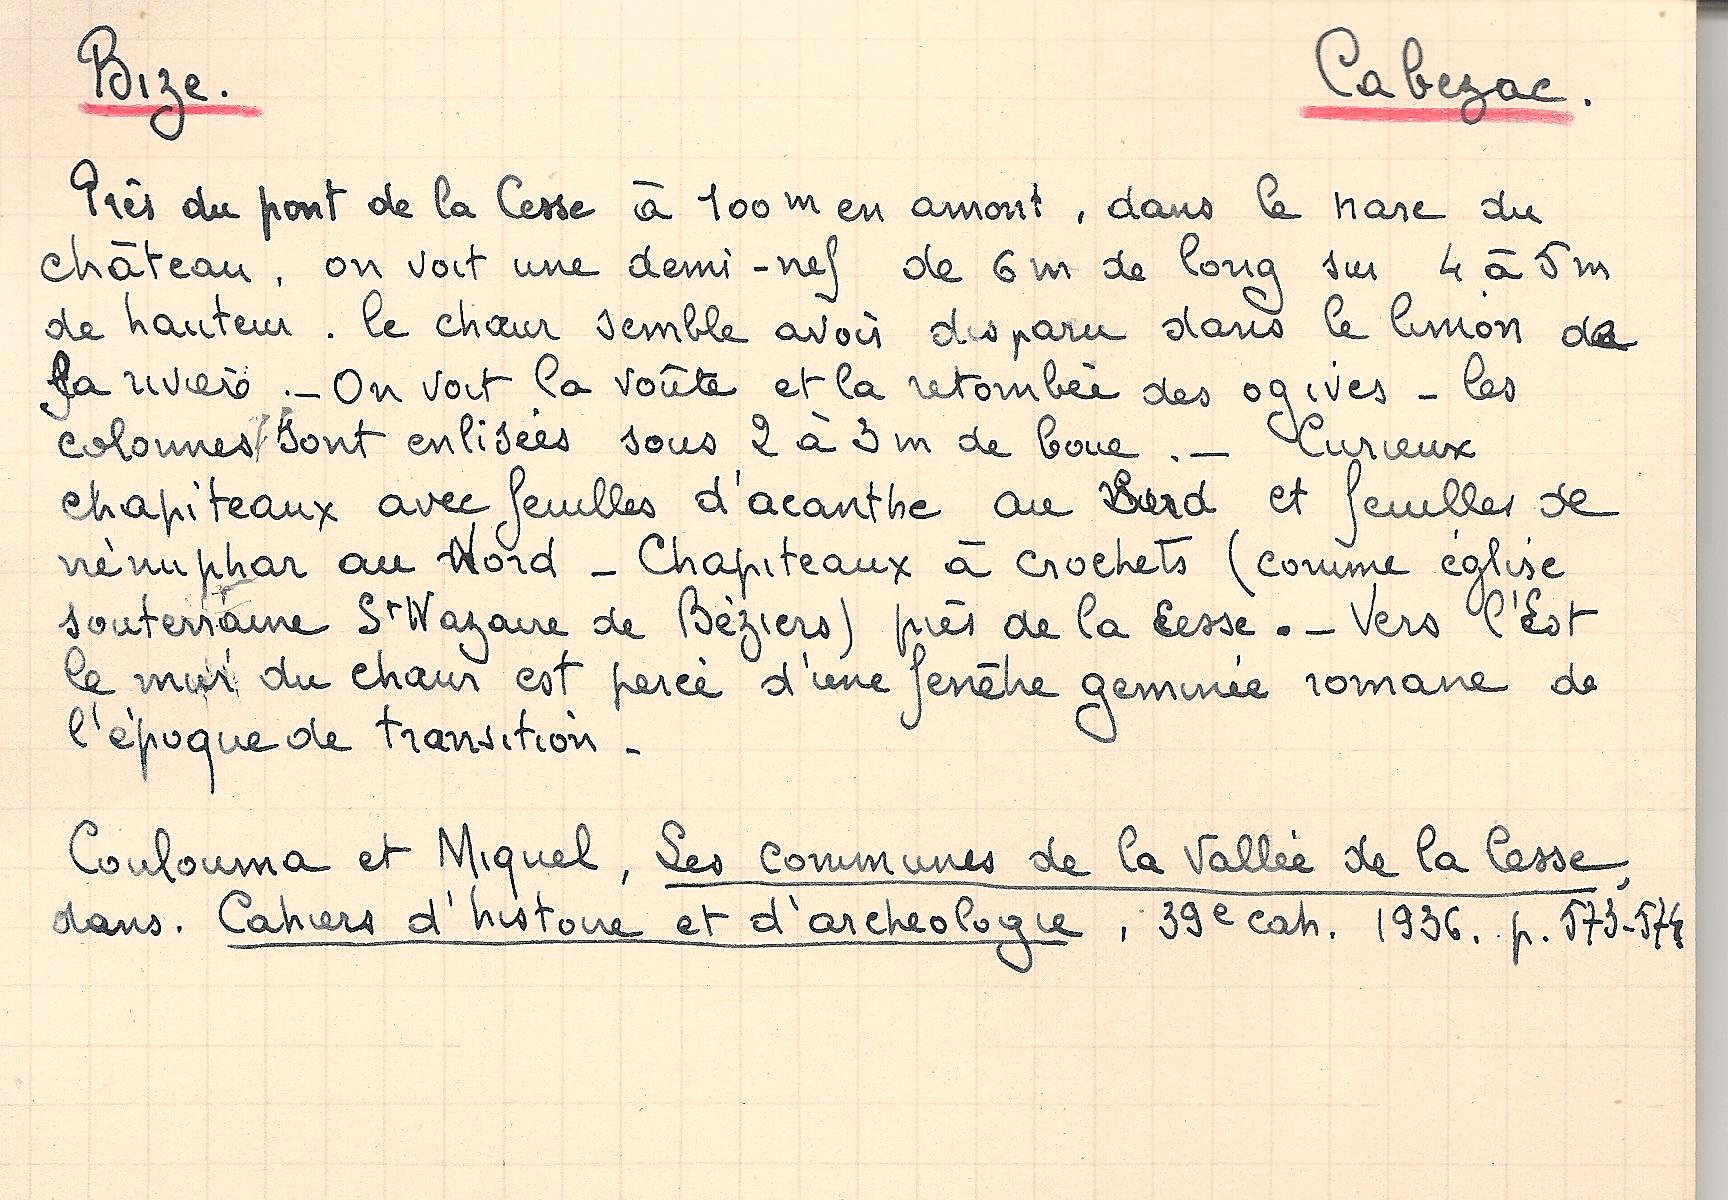 Bize. Cabezac.
Près du pont de la Cesse à 100 m en amont, dans le parc du
château, on voit une demi-nef de 6 m de long sur 4 à 5 m
de hauteur. Le chœur semble avoir disparu dans le limon de
la rivière.— On voit la voûte et la retombée des ogives — les
colonnes sont enlisées sous 2 à 3 m de boue.— Curieux
chapiteaux avec feuilles d'acanthe au Sud et feuilles de
nénuphar au Nord — Chapiteaux à crochets (comme église
souterraine St Nazaire de Béziers) près de la Cesse.— Vers l'Est
le mur du chœur est percé d'une fenêtre geminée romane de
l'époque de transition —
Coulouma et Miquel, Les communes de la Vallée de la Cesse,
dans. Cahiers d'histoire et d'archeologie, 39e cah. 1936. p. 573-574